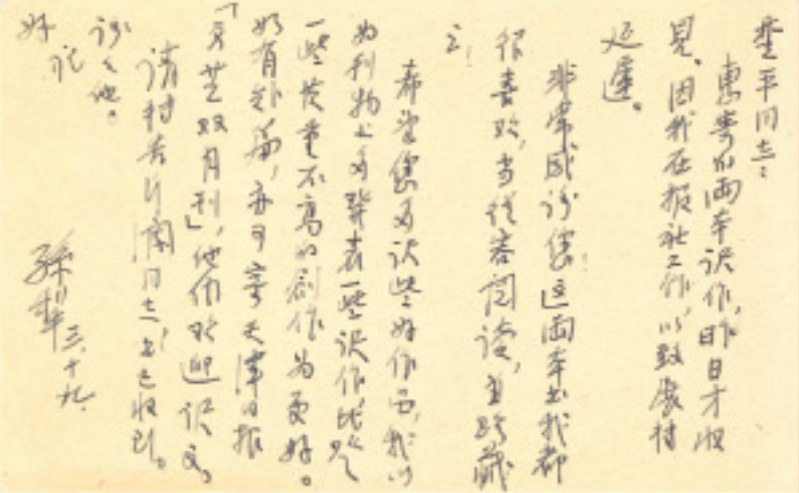 平同志：
惠寄的两本译作，昨日才收
见，因我在报社工作，以致展转
延遲。
非常感谢您！这两本书我都
很喜欢，当从容阅读，并珍藏
之！
希望您多译些好作品，我以
为刊物上多发表一些译作，比
一些质量不高的创作为更好。
如有新篇，亦可寄天津日报
「文艺双月刊」，他们欢迎译文。
请转告同志，书已收到。
谢谢他。
祝
好
孙犁 三.十九.